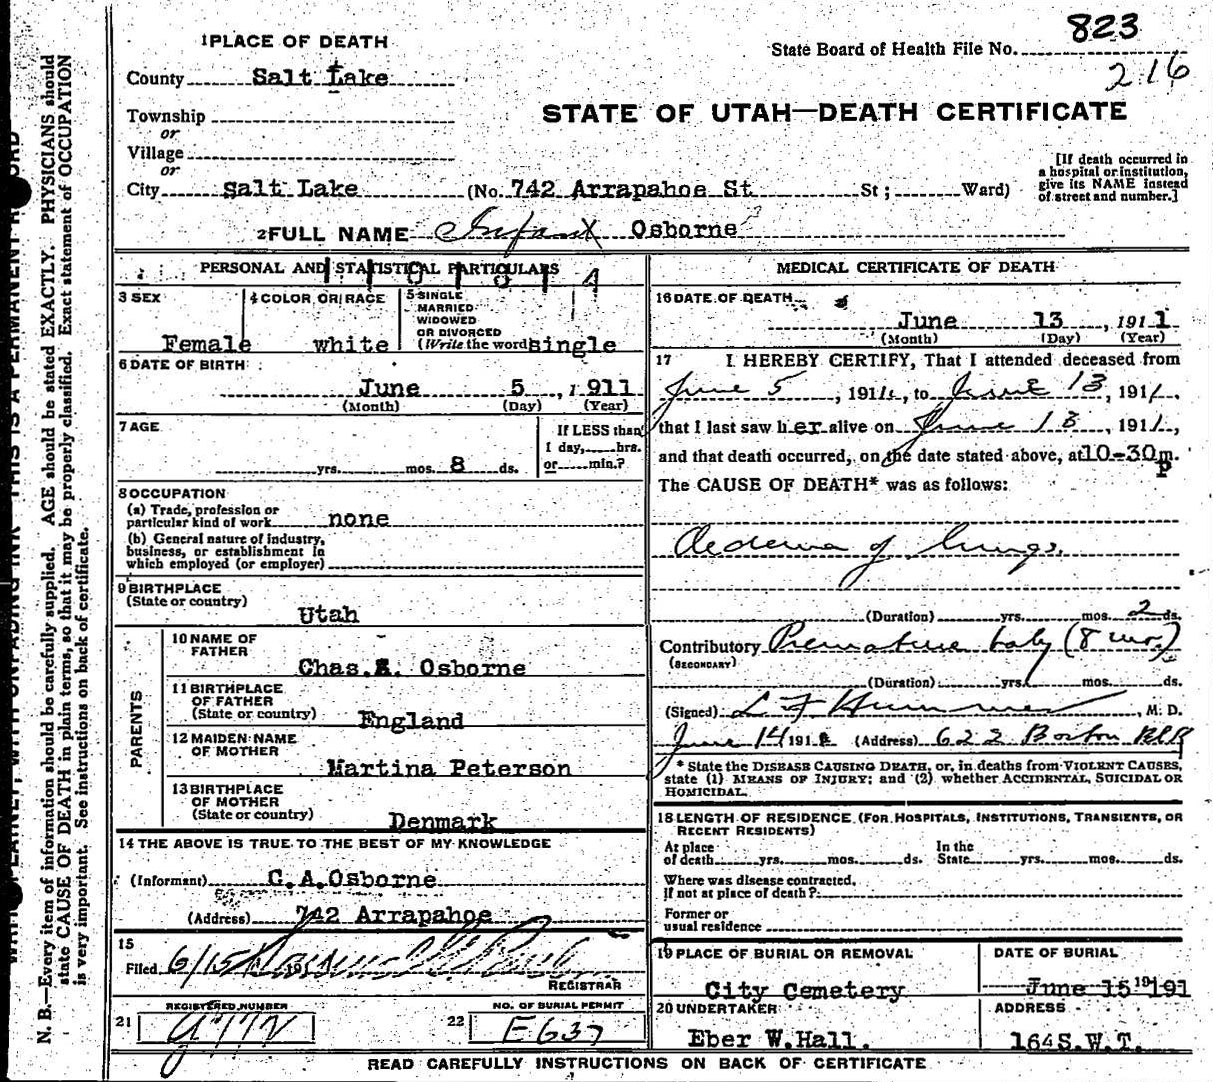 1 PLACE OF DEATH
State Board of Health File No. 823
216
County Salt Lake
STATE OF UTAH—DEATH CERTIFICATE
Township
or
Village
or
City Salt Lake (No. 742 Arrapahoe St St; Ward)
[If death occurred in
a hospital or institution,
give its NAME instead
of street and number.]
2 FULL NAME Infant Osborne
PERSONAL AND STATISTICAL PARTICULARS
3 SEX
Female
4 COLOR OR RACE
white
5 SINGLE
MARRIED
WIDOWED
OR DIVORCED
(Write the word) single
6 DATE OF BIRTH
June 5, 1911
(Month) (Day) (Year)
7 AGE
yrs. mos. 8 ds.
If LESS than
1 day, hrs.
or min.?
8 OCCUPATION
(a) Trade, profession or
particular kind of work none
(b) General nature of industry,
business, or establishment in
which employed (or employer)
9 BIRTHPLACE
(State or country)
Utah
PARENTS
10 NAME OF
FATHER
Chas. A. Osborne
11 BIRTHPLACE
OF FATHER
(State or country)
England
12 MAIDEN NAME
OF MOTHER
Martina Peterson
13 BIRTHPLACE
OF MOTHER
(State or country)
Denmark
14 THE ABOVE IS TRUE TO THE BEST OF MY KNOWLEDGE
(Informant) C.A.Osborne
(Address) 742 Arrapahoe
15
Filed 6/15 191
REGISTRAR
REGISTERED NUMBER
21
NO. OF BURIAL PERMIT
22 E637
MEDICAL CERTIFICATE OF DEATH
16 DATE OF DEATH
June 13, 1911
(Month) (Day) (Year)
17 I HEREBY CERTIFY, That I attended deceased from
June 5, 1911, to June 13, 1911.
that I last saw her alive on June 13, 1911,
and that death occurred, on the date stated above, at 10-30 p m.
The CAUSE OF DEATH* was as follows:
Oedema of lungs.
(Duration) yrs. mos. 2 ds.
Contributory Premature baby (8 mo.)
(SECONDARY)
(Duration) yrs. mos. ds.
(Signed) L F Hummer, M. D.
June 14 191 (Address) 622 Boston Bld
* State the DISEASE CAUSING DEATH, or, in deaths from VIOLENT CAUSES,
state (1) MEANS OF INJURY; and (2) whether ACCIDENTAL, SUICIDAL OR
HOMICIDAL.
18 LENGTH OF RESIDENCE (FOR HOSPITALS, INSTITUTIONS, TRANSIENTS, OR
RECENT RESIDENTS)
At place
of death yrs. mos. ds.
In the
State yrs. mos. ds.
Where was disease contracted,
If not at place of death?
Former or
usual residence
19 PLACE OF BURIAL OR REMOVAL
City Cemetery
DATE OF BURIAL
June 15 191
20 UNDERTAKER
Eber W.Hall.
ADDRESS
164S.W.T.
READ CAREFULLY INSTRUCTIONS ON BACK OF CERTIFICATE
N. B.—Every item of information should be carefully supplied. AGE should be stated EXACTLY. PHYSICIANS should
state CAUSE OF DEATH in plain terms, so that it may be properly classified. Exact statement of OCCUPATION
is very important. See instructions on back of certificate.
THIS IS A PERMANENT